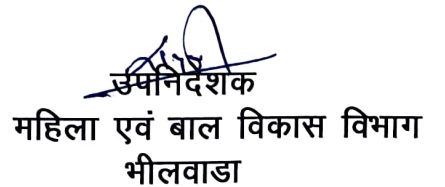 उपनिदेशक
महिला एवं बाल विकास विभाग
भीलवाडा